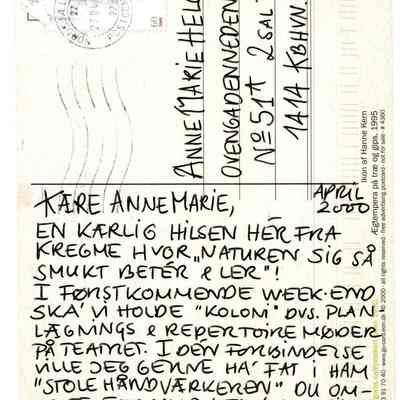 ANNE MARIE HEL
OVENGADEN NEDEN
NO 51A 2 SAL T
1414 KBHVN.
Ikon af Hanne Kern
Ægtempera på træ og gips, 1995
free advertising postcard - not for sale - # 4360
APRIL
2000
KÆRE ANNE MARIE,
EN KÆRLIG HILSEN HER FRA
KREGME HVOR „NATUREN SIG SÅ
SMUKT BETER & LER"!
I FØRSTKOMMENDE WEEK-END
SKA' VI HOLDE "KOLONI" DVS. PLAN
LÆGNINGS & REPERTOIRE MØDER
PÅ TEATRET. I DEN FORBINDELSE
VILLE JEG GERNE HA' FAT I HAM
"STOLE HÅNDVÆRKEREN" DU OM-